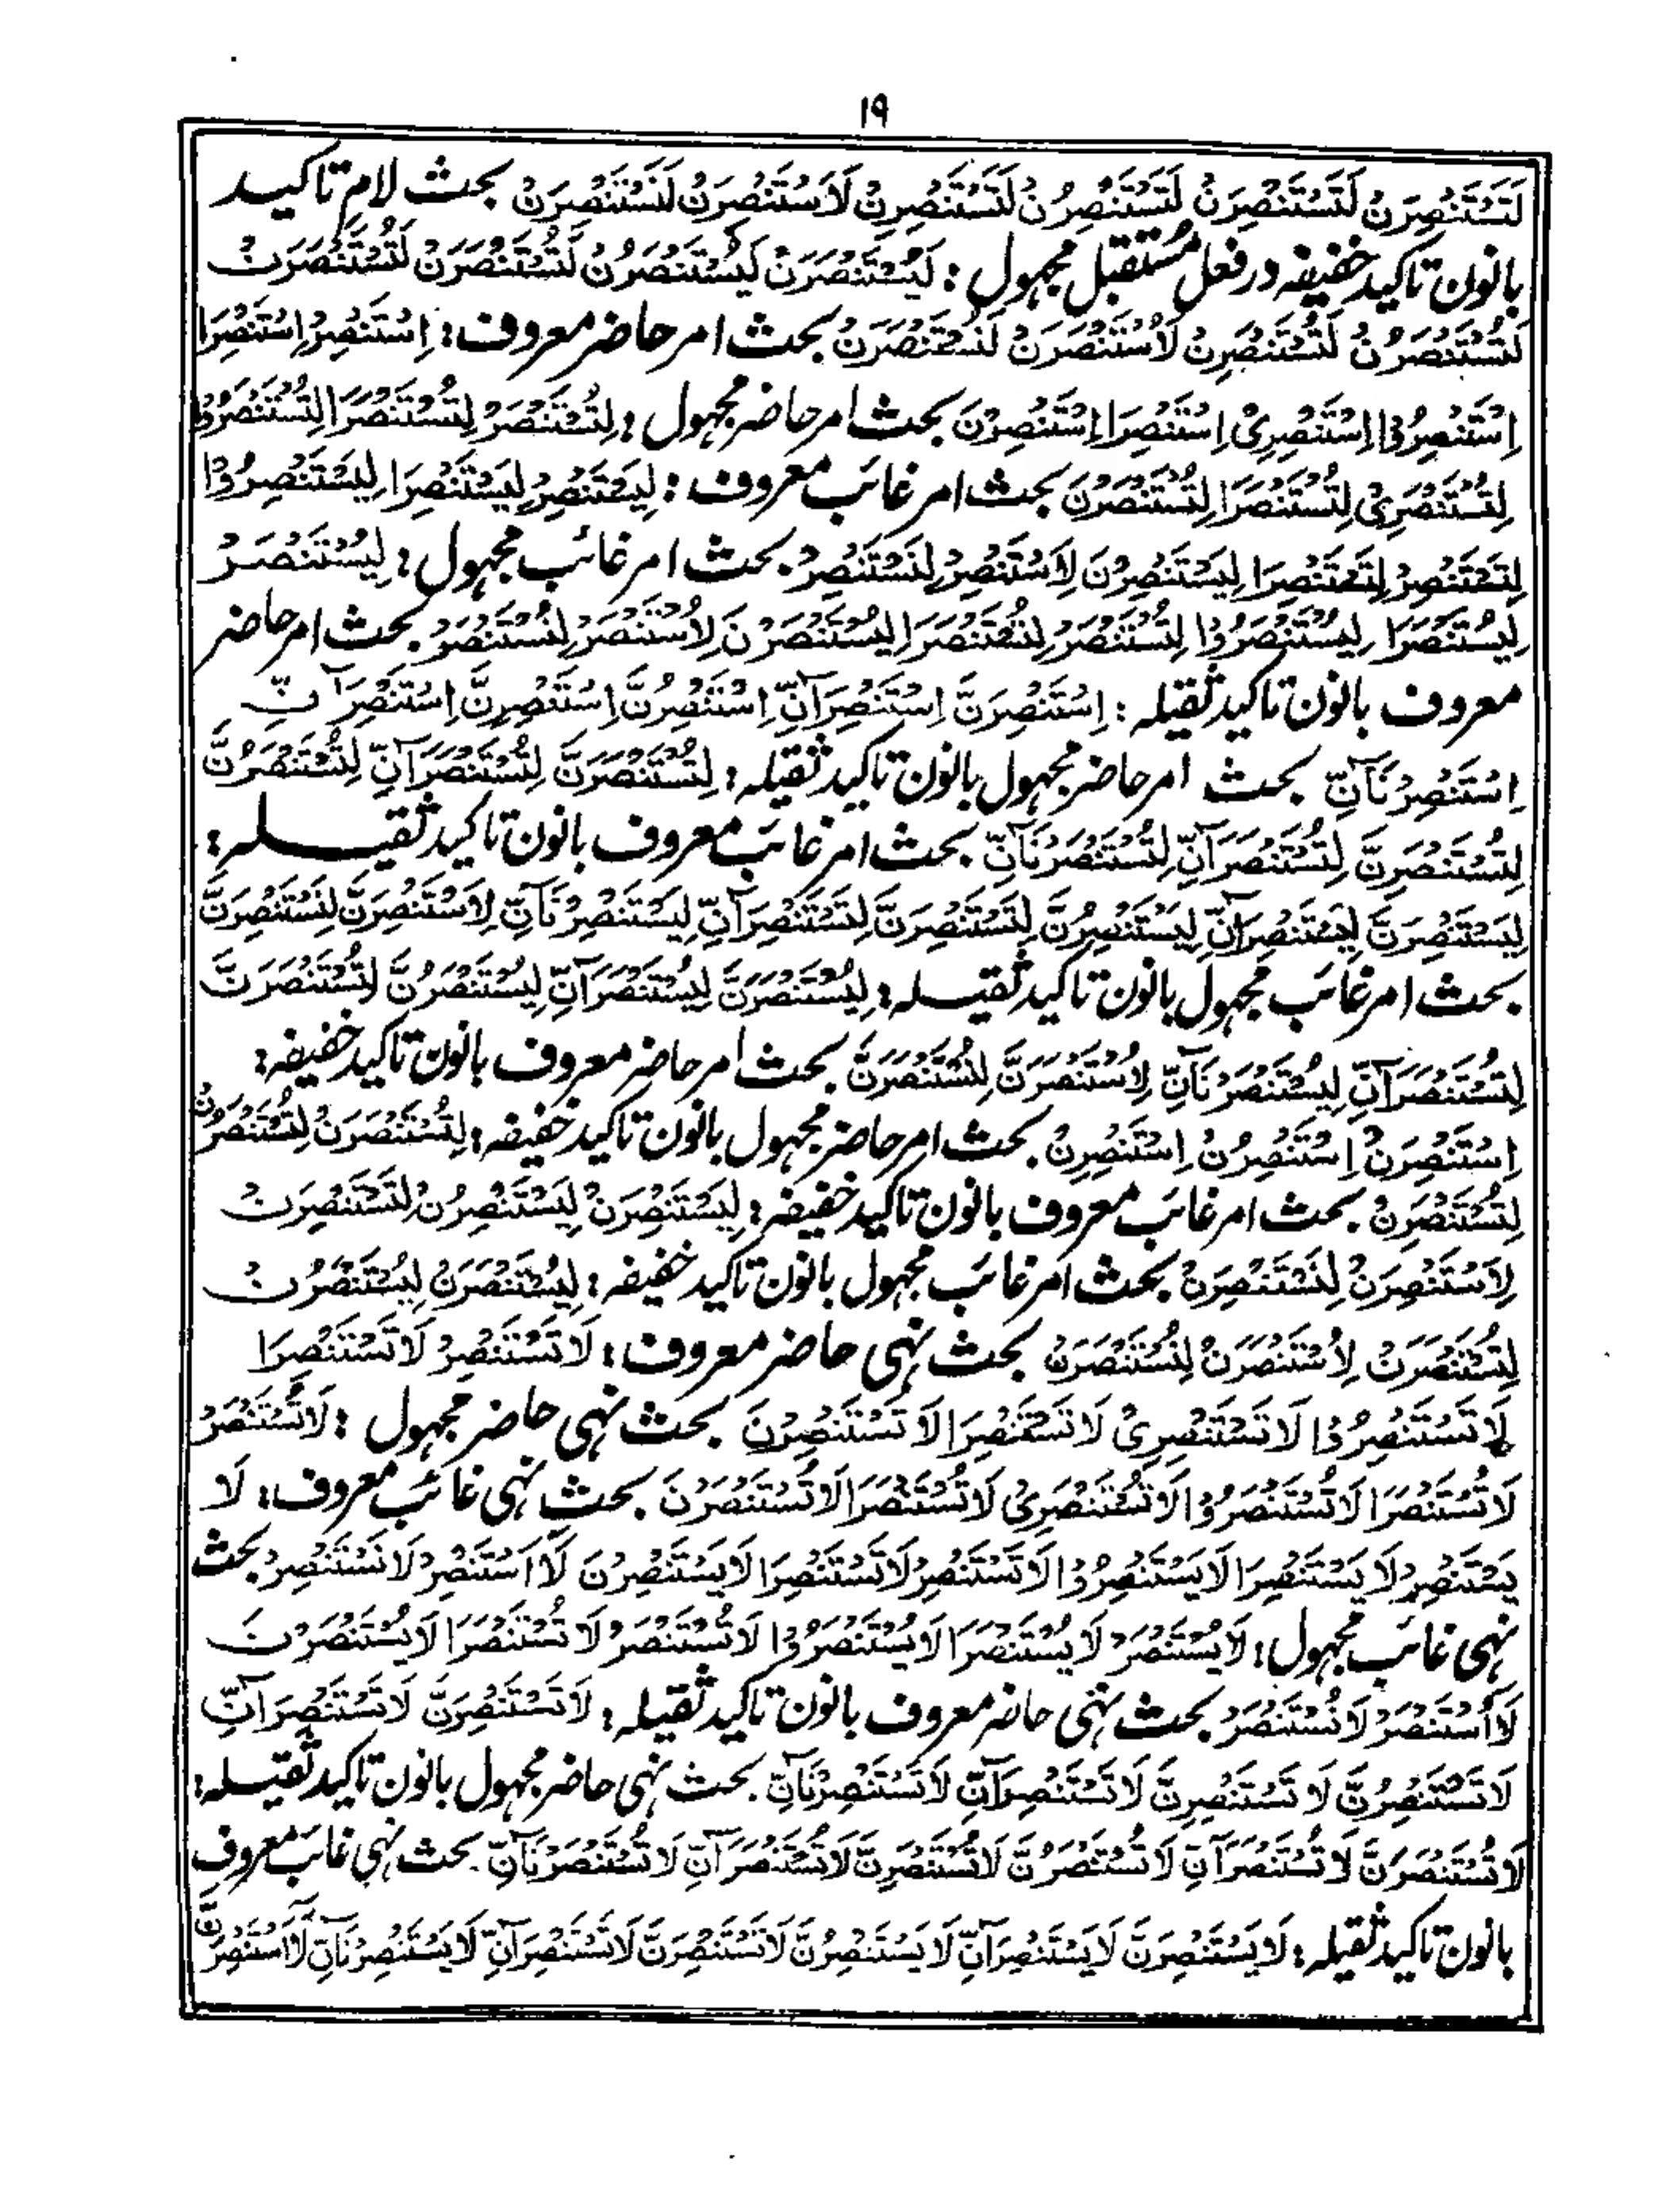 ۱۹
لَتَسْتَنْصِرَنْ لَتَسْتَنْصِرَنْ لَتَسْتَنْصِرُنْ لَتَسْتَنْصِرِنْ لَاَسْتَنْصِرَنْ لَنَسْتَنْصِرَنْ بحث لام تاکید
بانون تاکید خفیفہ در فعل مُستقبل مجہول : لَيُسْتَنْصَرَنْ لَيُسْتَنْصَرُنْ لَتُسْتَنْصَرَنْ لَتُسْتَنْصَرَنْ
لَتُسْتَنْصَرُنْ لَتُسْتَنْصَرِنْ لَاُسْتَنْصَرَنْ لَنُسْتَنْصَرَنْ بحث امر حاضر معروف : اِسْتَنْصِرْ اِسْتَنْصِرَا
اِسْتَنْصِرُوْا اِسْتَنْصِرِىْ اِسْتَنْصِرَا اِسْتَنْصِرْنَ بحث امر حاضر مجہول : لِتُسْتَنْصَرْ لِتُسْتَنْصَرَا لِتُسْتَنْصَرُوْا
لِتُسْتَنْصَرِىْ لِتُسْتَنْصَرَا لِتُسْتَنْصَرْنَ بحث امر غائب معروف : لِيَسْتَنْصِرْ لِيَسْتَنْصِرَا لِيَسْتَنْصِرُوْا
لِتَسْتَنْصِرْ لِتَسْتَنْصِرَا لِيَسْتَنْصِرْنَ لِاَسْتَنْصِرْ لِنَسْتَنْصِرْ بحث امر غائب مجہول : لِيُسْتَنْصَرْ
لِيُسْتَنْصَرَا لِيُسْتَنْصَرُوْا لِتُسْتَنْصَرْ لِتُسْتَنْصَرَا لِيُسْتَنْصَرْنَ لِاُسْتَنْصَرْ لِنُسْتَنْصَرْ بحث امر حاضر
معروف بانون تاکید ثقیلہ : اِسْتَنْصِرَنَّ اِسْتَنْصِرَآنِّ اِسْتَنْصِرُنَّ اِسْتَنْصِرِنَّ اِسْتَنْصِرَآنِّ
اِسْتَنْصِرْنَآنِّ بحث امر حاضر مجہول بانون تاکید ثقیلہ : لِتُسْتَنْصَرَنَّ لِتُسْتَنْصَرَآنِّ لِتُسْتَنْصَرُنَّ
لِتُسْتَنْصَرِنَّ لِتُسْتَنْصَرَآنِّ لِتُسْتَنْصَرْنَآنِّ بحث امر غائب معروف بانون تاکید ثقیلہ :
لِيَسْتَنْصِرَنَّ لِيَسْتَنْصِرَآنِّ لِيَسْتَنْصِرُنَّ لِتَسْتَنْصِرَنَّ لِتَسْتَنْصِرَآنِّ لِيَسْتَنْصِرْنَآنِّ لِاَسْتَنْصِرَنَّ لِنَسْتَنْصِرَنَّ
بحث امر غائب مجہول بانون تاکید ثقیلہ : لِيُسْتَنْصَرَنَّ لِيُسْتَنْصَرَآنِّ لِيُسْتَنْصَرُنَّ لِتُسْتَنْصَرَنَّ
لِتُسْتَنْصَرَآنِّ لِيُسْتَنْصَرْنَآنِّ لِاُسْتَنْصَرَنَّ لِنُسْتَنْصَرَنَّ بحث امر حاضر معروف بانون تاکید خفیفہ :
اِسْتَنْصِرَنْ اِسْتَنْصِرُنْ اِسْتَنْصِرِنْ بحث امر حاضر مجہول بانون تاکید خفیفہ : لِتُسْتَنْصَرَنْ لِتُسْتَنْصَرُنْ
لِتُسْتَنْصَرِنْ بحث امر غائب معروف بانون تاکید خفیفہ : لِيَسْتَنْصِرَنْ لِيَسْتَنْصِرُنْ لِتَسْتَنْصِرَنْ
لِاَسْتَنْصِرَنْ لِنَسْتَنْصِرَنْ بحث امر غائب مجہول بانون تاکید خفیفہ : لِيُسْتَنْصَرَنْ لِيُسْتَنْصَرُنْ
لِتُسْتَنْصَرَنْ لِاُسْتَنْصَرَنْ لِنُسْتَنْصَرَنْ بحث نہی حاضر معروف : لَا تَسْتَنْصِرْ لَا تَسْتَنْصِرَا
لَا تَسْتَنْصِرُوْا لَا تَسْتَنْصِرِىْ لَا تَسْتَنْصِرَا لَا تَسْتَنْصِرْنَ بحث نہی حاضر مجہول : لَا تُسْتَنْصَرْ
لَا تُسْتَنْصَرَا لَا تُسْتَنْصَرُوْا لَا تُسْتَنْصَرِىْ لَا تُسْتَنْصَرَا لَا تُسْتَنْصَرْنَ بحث نہی غائب معروف : لَا
يَسْتَنْصِرْ لَا يَسْتَنْصِرَا لَا يَسْتَنْصِرُوْا لَا تَسْتَنْصِرْ لَا تَسْتَنْصِرَا لَا يَسْتَنْصِرْنَ لَا اَسْتَنْصِرْ لَا نَسْتَنْصِرْ بحث
نہی غائب مجہول : لَا يُسْتَنْصَرْ لَا يُسْتَنْصَرَا لَا يُسْتَنْصَرُوْا لَا تُسْتَنْصَرْ لَا تُسْتَنْصَرَا لَا يُسْتَنْصَرْنَ
لَا اُسْتَنْصَرْ لَا نُسْتَنْصَرْ بحث نہی حاضر معروف بانون تاکید ثقیلہ : لَا تَسْتَنْصِرَنَّ لَا تَسْتَنْصِرَآنِّ
لَا تَسْتَنْصِرُنَّ لَا تَسْتَنْصِرِنَّ لَا تَسْتَنْصِرَآنِّ لَا تَسْتَنْصِرْنَآنِّ بحث نہی حاضر مجہول بانون تاکید ثقیلہ :
لَا تُسْتَنْصَرَنَّ لَا تُسْتَنْصَرَآنِّ لَا تُسْتَنْصَرُنَّ لَا تُسْتَنْصَرِنَّ لَا تُسْتَنْصَرَآنِّ لَا تُسْتَنْصَرْنَآنِّ بحث نہی غائب معروف
بانون تاکید ثقیلہ : لَا يَسْتَنْصِرَنَّ لَا يَسْتَنْصِرَآنِّ لَا يَسْتَنْصِرُنَّ لَا تَسْتَنْصِرَنَّ لَا تَسْتَنْصِرَآنِّ لَا يَسْتَنْصِرْنَآنِّ لَا اَسْتَنْصِرَنَّ